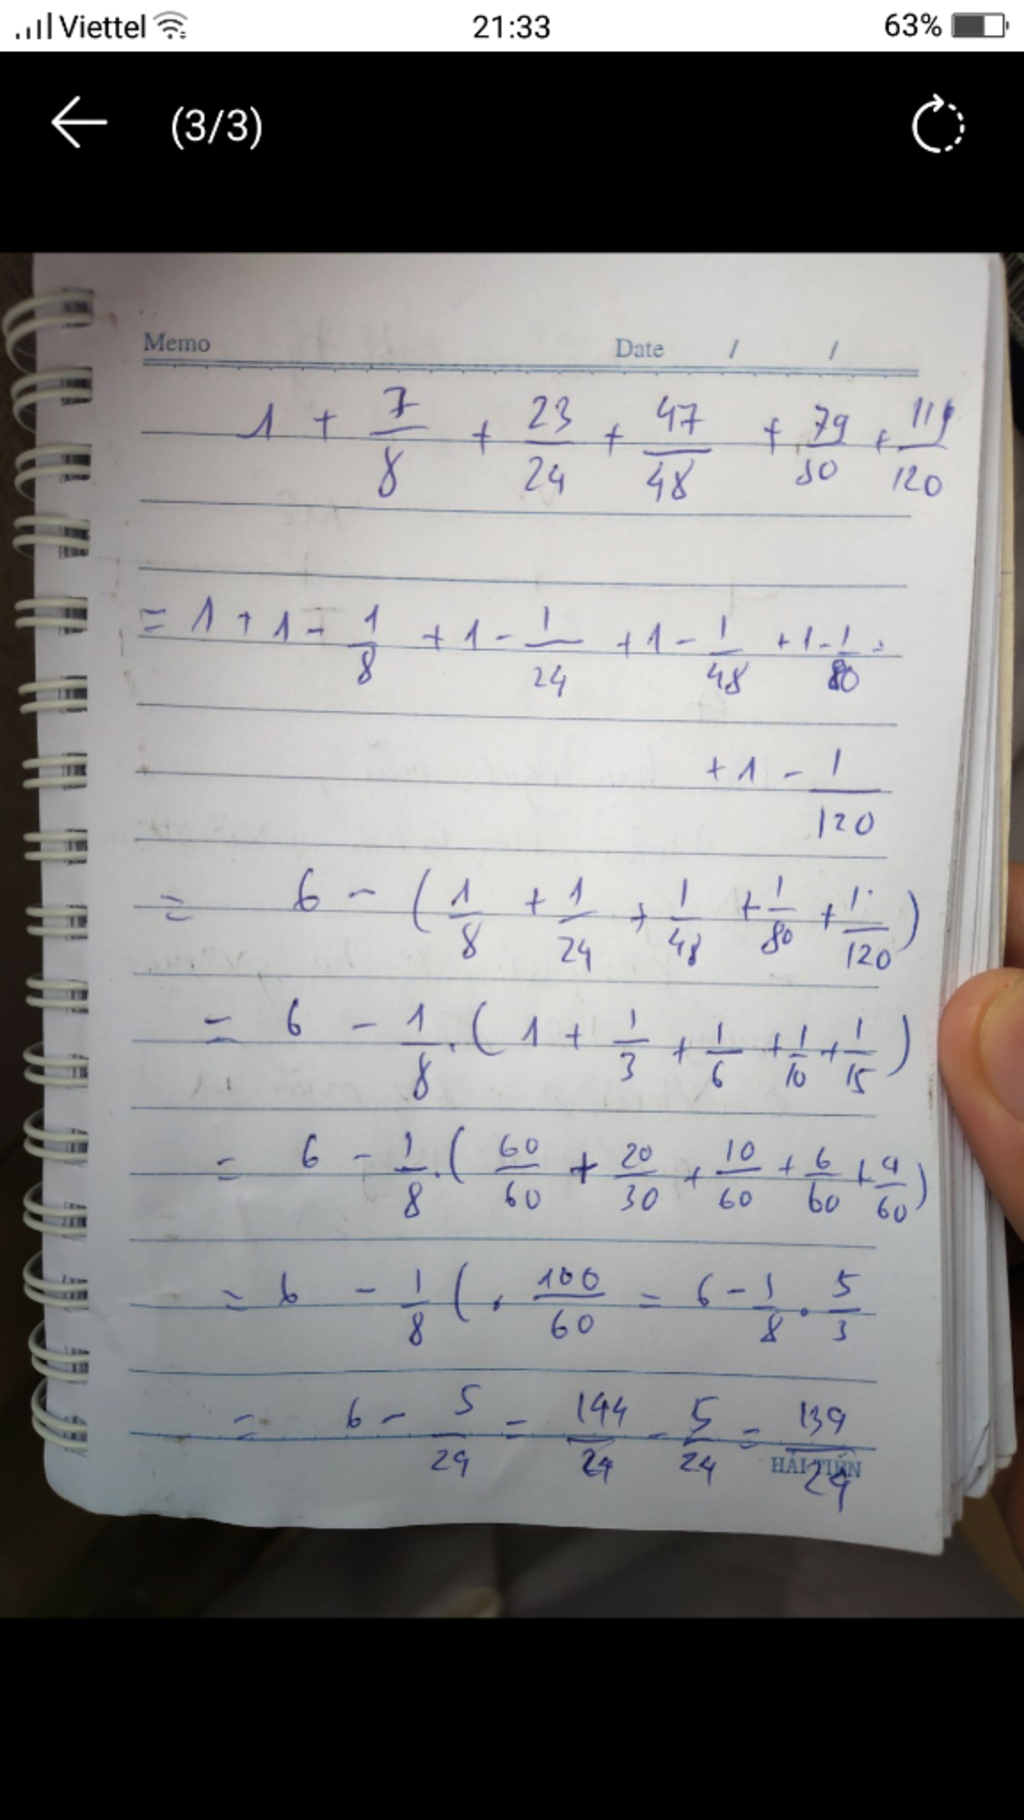 Viettel 21:33 63%
(3/3)
Memo Date / /
1 + 7/8 + 23/24 + 47/48 + 79/80 + 119/120
= 1 + 1 - 1/8 + 1 - 1/24 + 1 - 1/48 + 1 - 1/80 .
+ 1 - 1/120
= 6 - ( 1/8 + 1/24 + 1/48 + 1/80 + 1/120 )
= 6 - 1/8 . ( 1 + 1/3 + 1/6 + 1/10 + 1/15 )
= 6 - 1/8 . ( 60/60 + 20/30 + 10/60 + 6/60 + 4/60 )
= 6 - 1/8 ( . 100/60 = 6 - 1/8 . 5/3
= 6 - 5/24 = 144/24 - 5/24 = 139/24
HẢI TIẾN